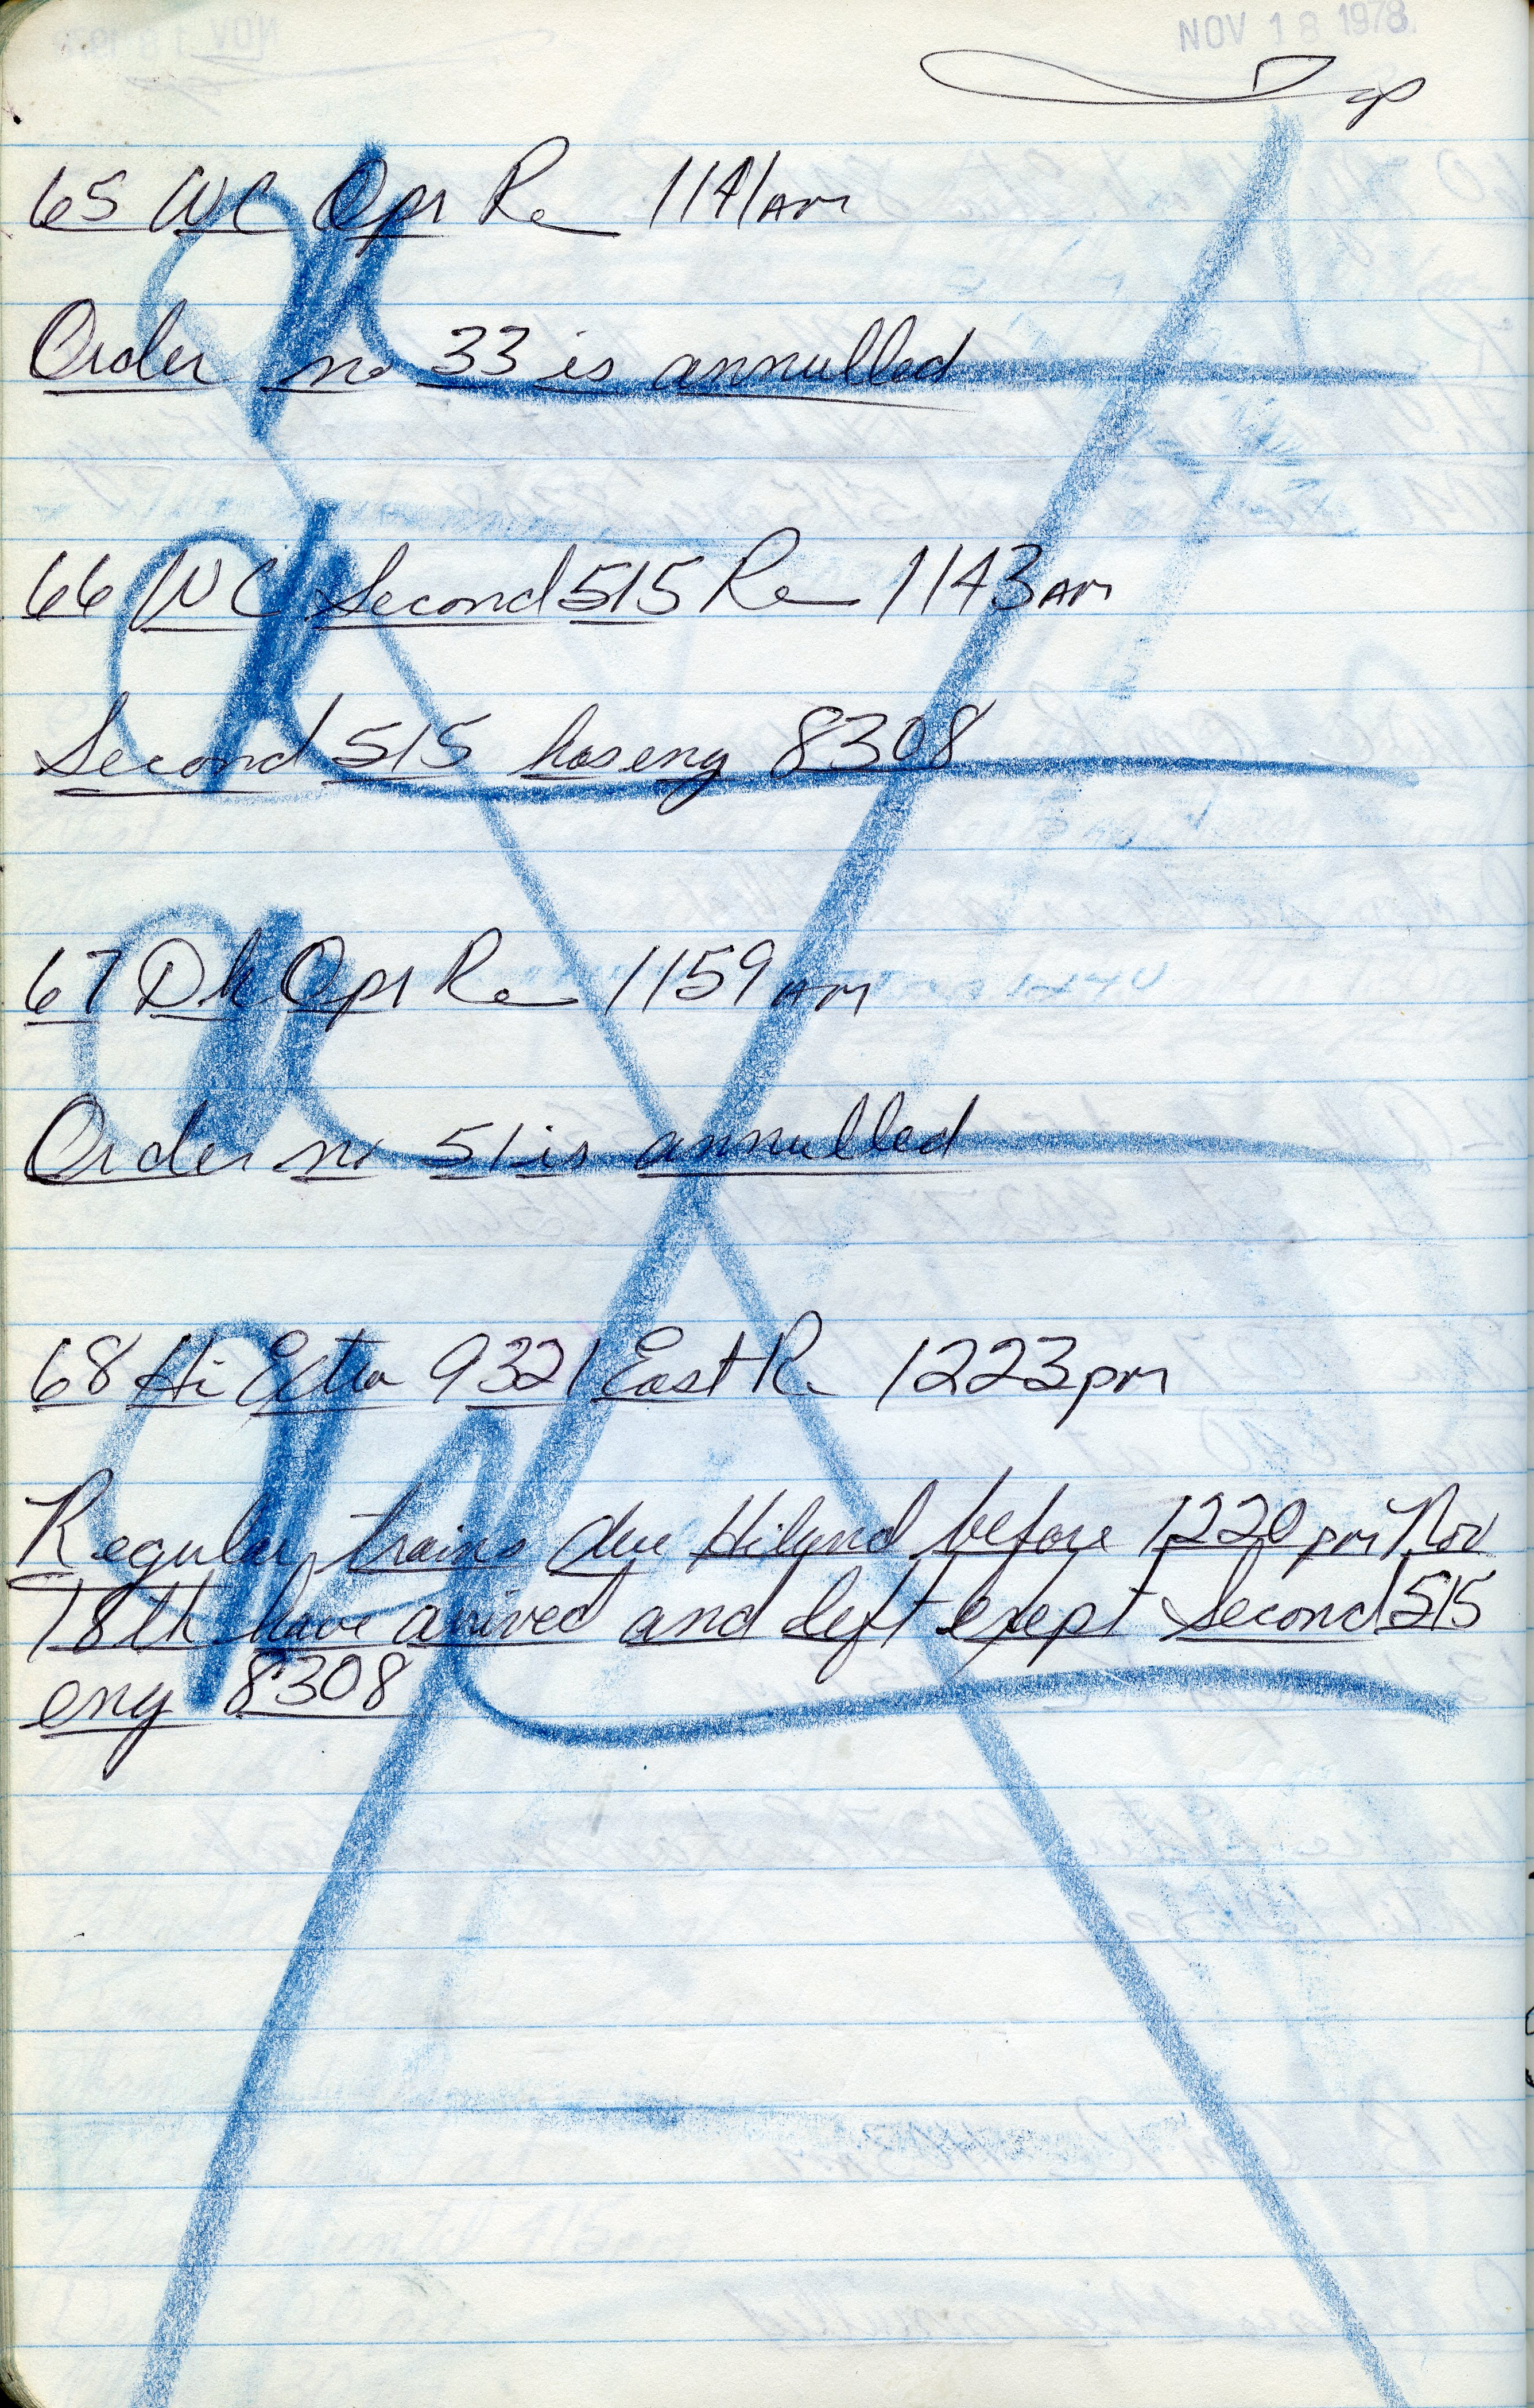 NOV 18 1978
65 WC Opr Re 1141AM
Order no 33 is annulled
66 WC Second 515 Re 1143AM
Second 515 has eng 8308
67 Dk Opr Re 1159AM
Order no 51 is annulled
68 Hi Extra 9321 East Re 1223pm
Regular trains due Hiland before 1220pm Nov
18th have arived and left exept Second 515
eng 8308